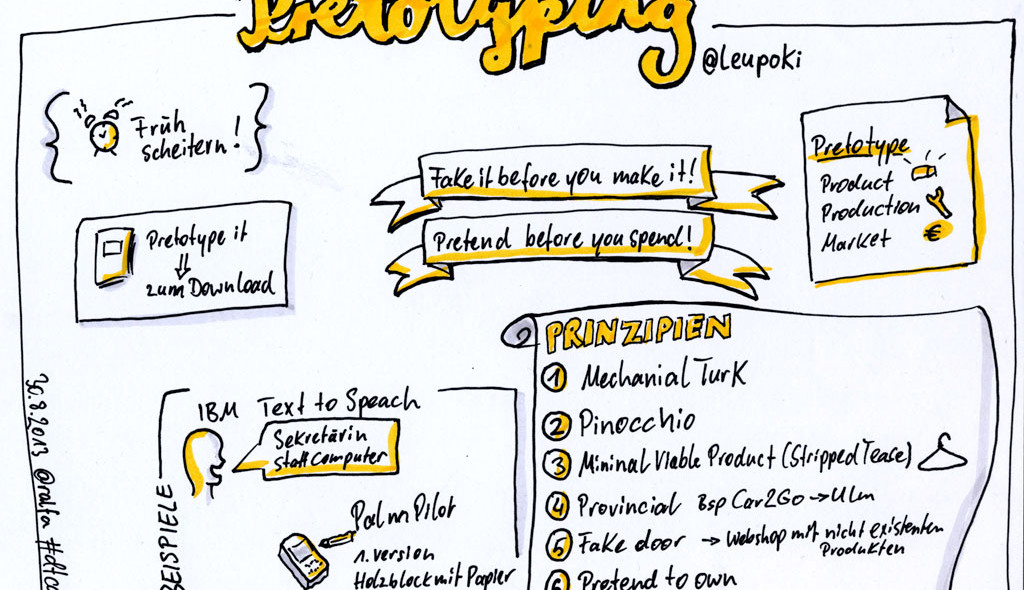 Pretotyping
@leupoki
Früh
scheitern!
Fake it before you make it!
Pretend before you spend!
Pretotype
Product
Production
Market
€
Pretotype it
⇓
zum Download
PRINZIPIEN
1 Mechanial Turk
2 Pinocchio
3 Mininal Viable Product (Stripped Tease)
4 Provincial Bsp Car2Go → Ulm
5 Fake door → Webshop mit nicht existenten
Produkten
6 Pretend to own
BEISPIELE
IBM Text to Speach
Sekretärin
statt Computer
Palm Pilot
1. version
Holzblock mit Papier
30.8.2013 @ralfa